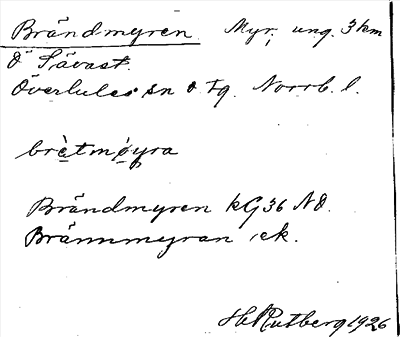 Brändmyren. Myr, ung. 3 km
Ö Sävast.
Överlulea sn o. tg. Norrb. l.
brètmøyra
Brändmyren kG36 NO.
Brännmyran ek.
Hl Rutberg 1926